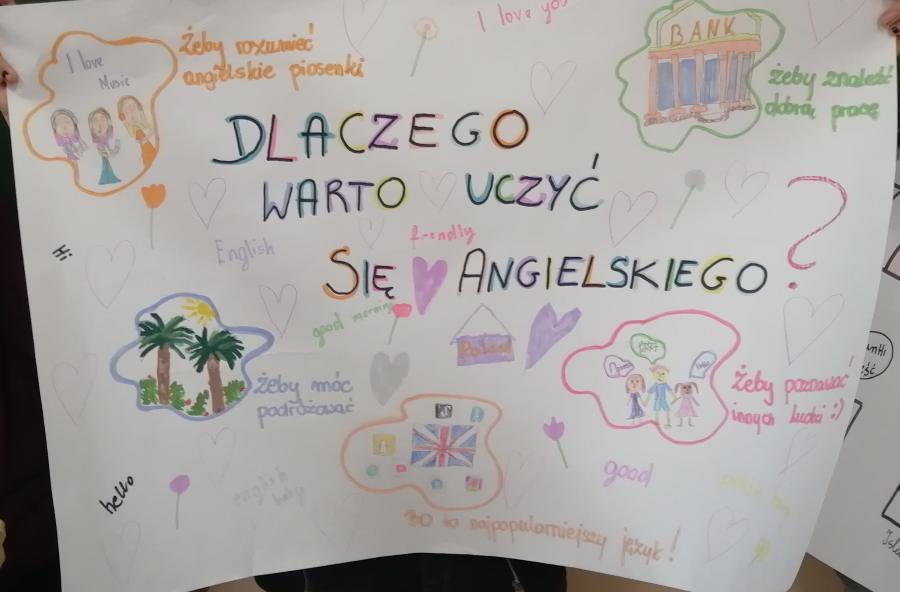 I love you
I love
Music
Żeby rozumieć
angielskie piosenki
BANK
żeby znaleść
dobrą pracę
DLACZEGO
WARTO UCZYĆ
SIĘ ANGIELSKIEGO ?
friendly
English
Hi
good morning
żeby móc
podróżować
żeby poznawać
innych ludzi :)
hello
english
good
BO to najpopularniejszy język!